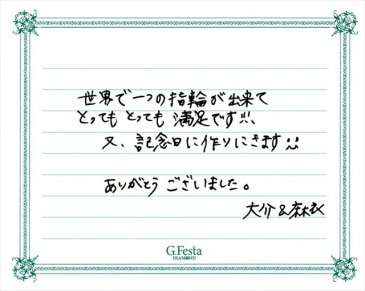 世界で一つの指輪が出来て
とっても とっても 満足です!!、
又、記念日に作りにきます
ありがとう ございました。
大介&麻衣
G.Festa
DIAMOND